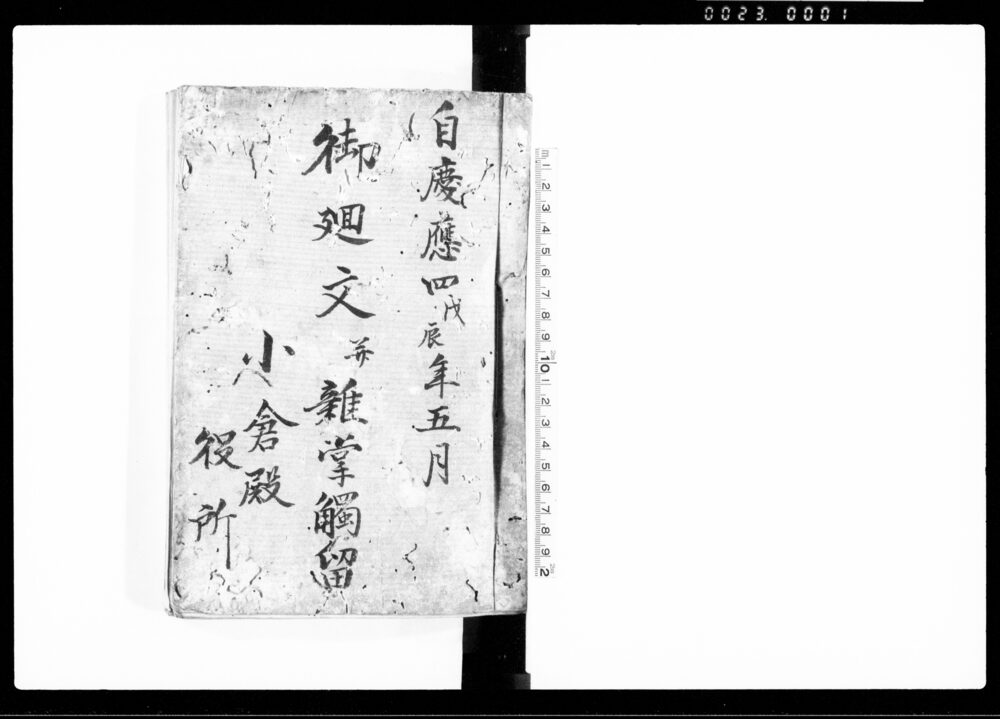 0023. 0001
自慶應四戊辰年五月
御廻文并雜掌觸留
小倉殿
役所
m 1 2 3 4 5 6 7 8 9 10 1 2 3 4 5 6 7 8 9 2